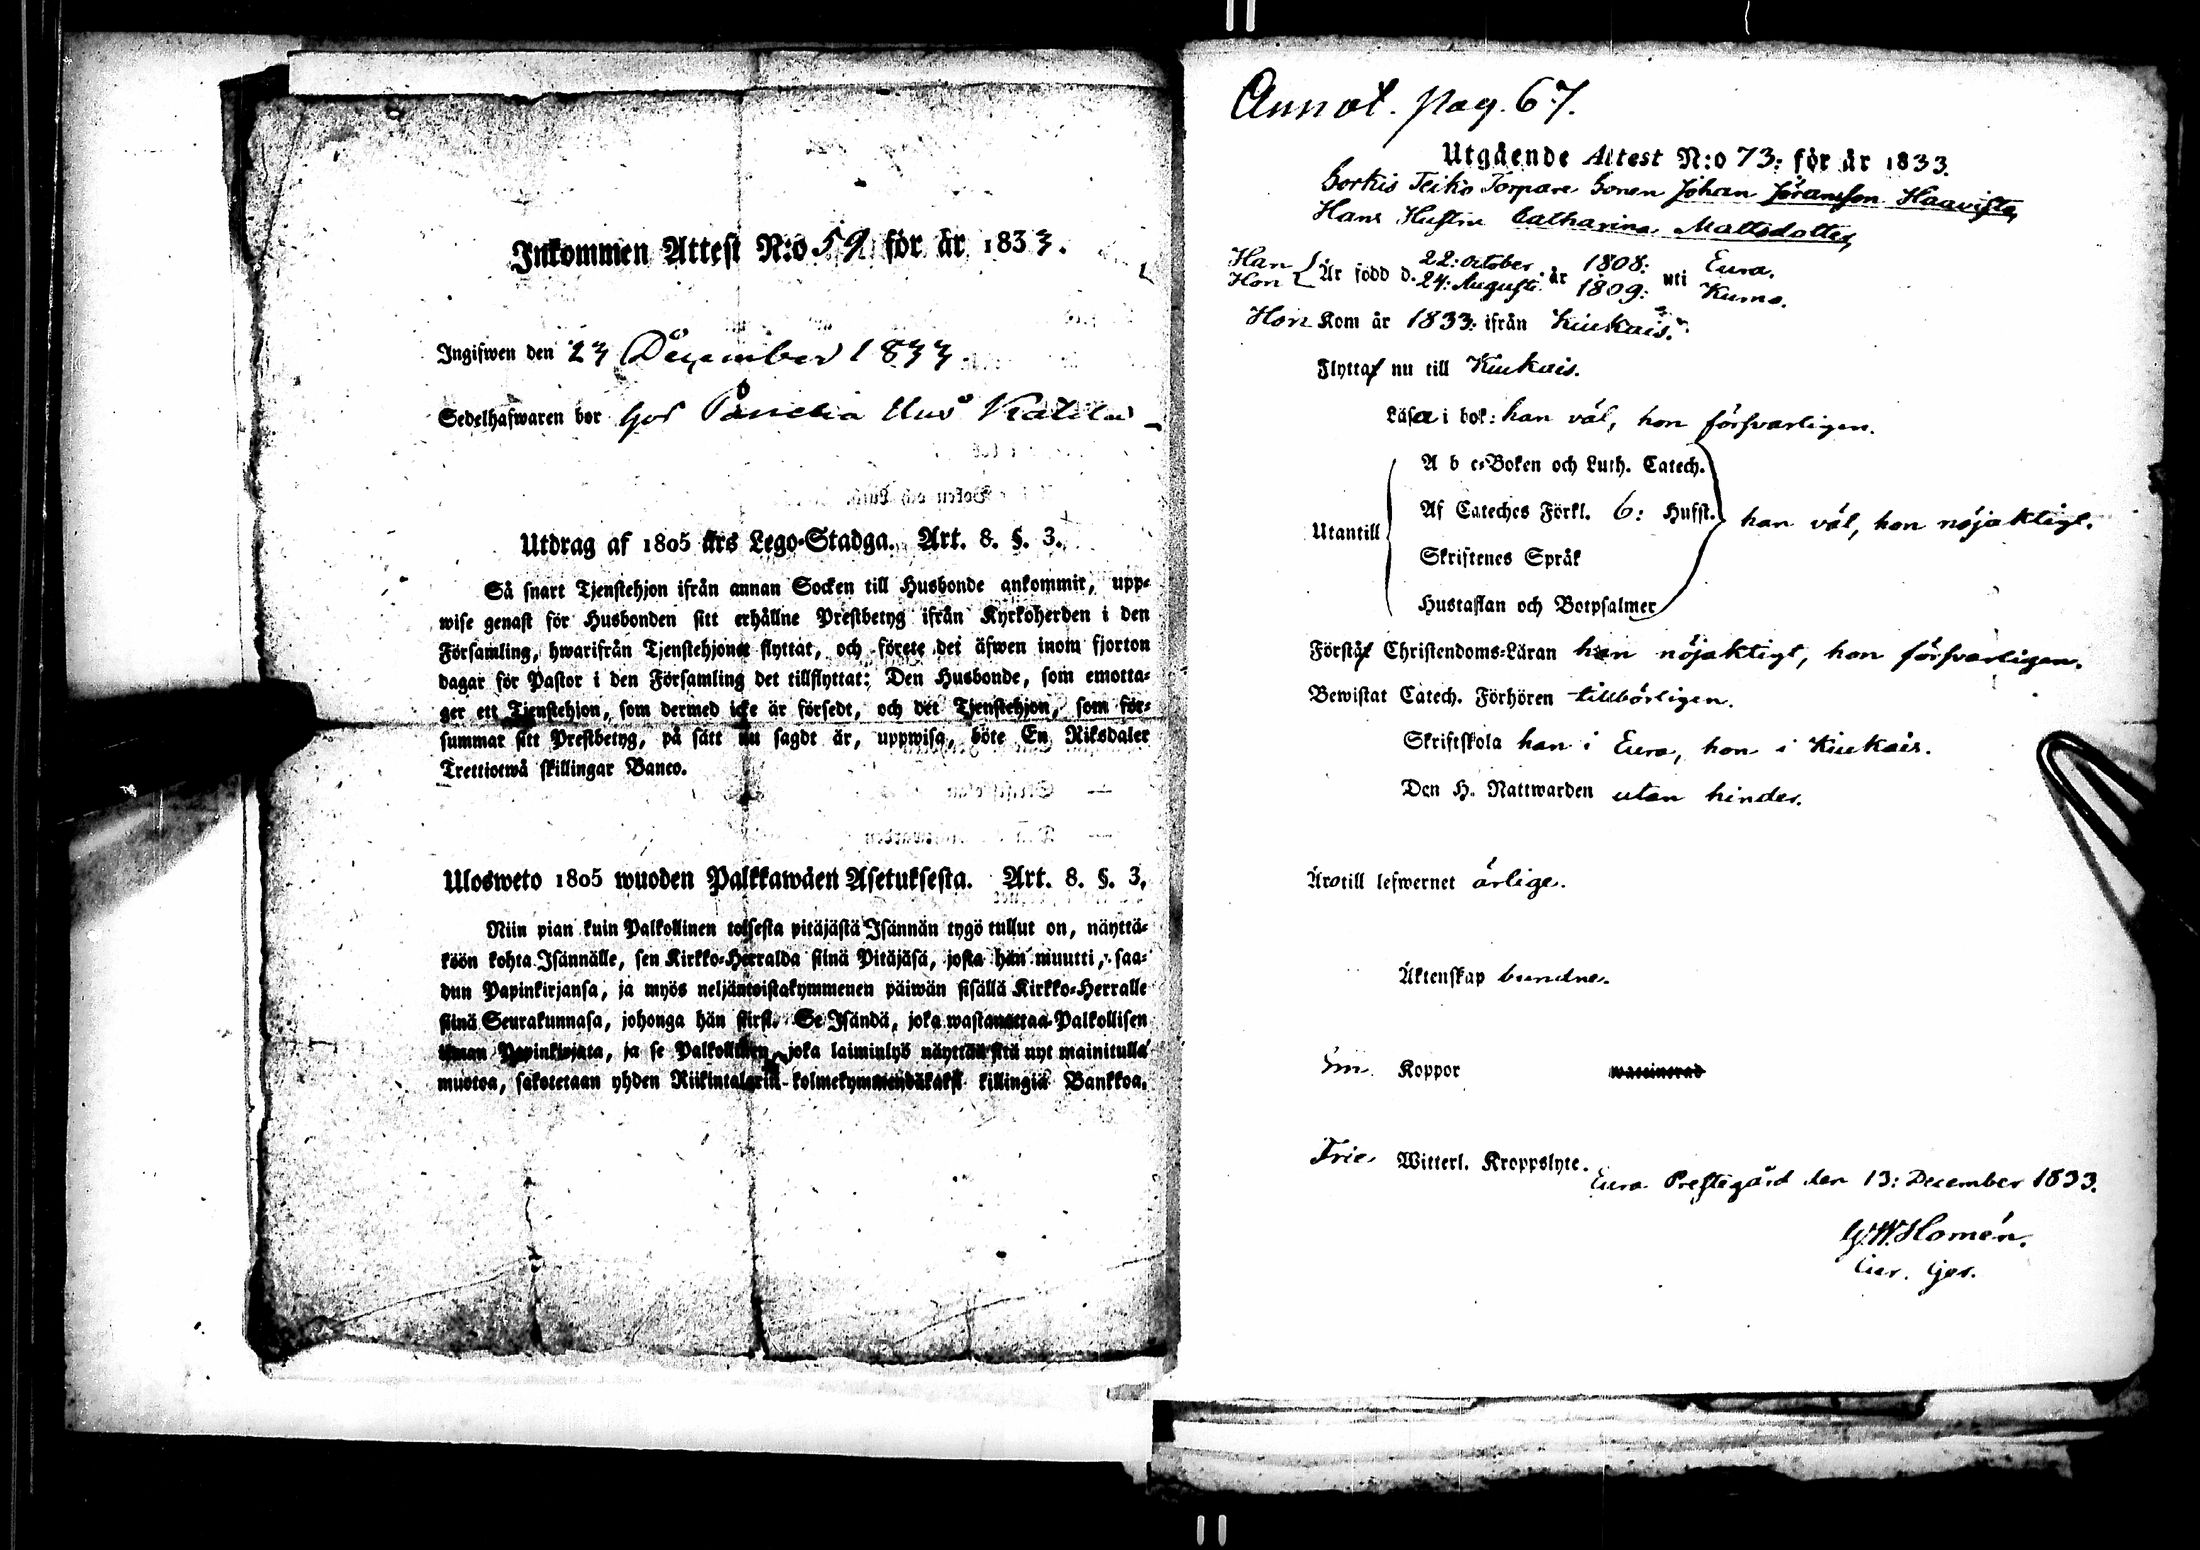 Inkommen Attest N:o 59 för år 1833.
Ingifwen den 23 December 1833.
Sedelhafwaren bor hos Panelia Uus Katila
Utdrag af 1805 års Lego-Stadga. Art. 8. §. 3.
Så snart Tjenstehjon ifrån annan Socken till Husbonde ankommit, upp-
wise genast för Husbonden sitt erhållne Prestbetyg ifrån Kyrkoherden i den
Församling, hwarifrån Tjenstehjonet flyttat, och förete det äfwen inom fjorton
dagar för Pastor i den Församling det tillflyttat: Den Husbonde, som emotta-
ger ett Tjenstehjon, som dermed icke är försedt, och det Tjenstehjon, som för-
summar sitt Prestbetyg, på sätt nu sagdt är, uppwisa, böte En Riksdaler
Trettiotwå skillingar Banco.
Ulosweto 1805 wuoden Palkkawäen Asetuksesta. Art. 8. §. 3,
Niin pian kuin Palkollinen toisesta pitäjästä Isännän tygö tullut on, näyttä-
köön kohta Isännälle, sen Kirkko-Herralda siinä Pitäjäsä, josta hän muutti, saa-
dun Papinkirjansa, ja myös neljäntoistakymmenen päiwän sisällä Kirkko-Herralle
siinä Seurakunnasa, johonga hän siirsi. Se Isändä, joka wastanottaa Palkollisen
ilman Papinkirjata, ja se Palkollinen, joka laiminlyö näyttää sitä nyt mainitulla
muotoa, sakotetaan yhden Riikintalarin kolmekymmendäkaksi killingiä Bankkoa.
Annot. pag. 67.
Utgående Attest N:o 73: för år 1833.
Sorkis Teiko Torpare Sonen Johan Jöransson Haavista,
Hans Hustru Catharina Mattsdotter,
Han 22: October 1808: Eura.
Är född d. år uti
Hon 24: Augusti 1809: Kumo.
Hon Kom år 1833: ifrån Kiukais.
Flytta nu till Kiukais.
Läsa i bok: han väl, hon försvarligen.
A b c-Boken och Luth. Catech.
Af Cateches Förkl. 6: Hufst.
Utantill han väl, hon nöjaktigt.
Skriftenes Språk
Hustaflan och Botpsalmer
Förstå Christendoms-Läran han nöjaktigt, hon försvarligen.
Bewistat Catech. Förhören tillbörligen.
Skriftskola han i Eura, hon i Kiukais.
Den H. Nattwarden utan hinder.
Äro till lefwernet ärlige.
Äktenskap bundne.
Koppor waccinerad
Frie Witterl. Kroppslyte.
Eura Prestegård den 13: December 1833.
G.W. Homén.